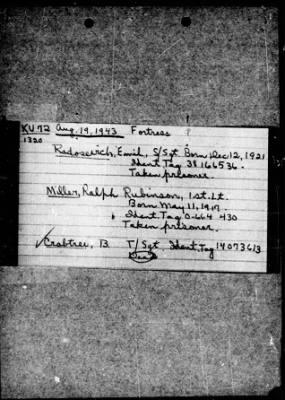 KU 72 Aug. 19, 1943 Fortress ?
1320
Radosevich, Emil, S/Sgt. Born Dec 12, 1921
Ident. Tag 38166536.
Taken prisoner.
Miller, Ralph Rubinson, 1st. Lt.
Born May 11, 1917
Ident. Tag O-664 430
Taken prisoner.
✓Crabtree, B. T/Sgt. Ident. Tag 14073613
Dead